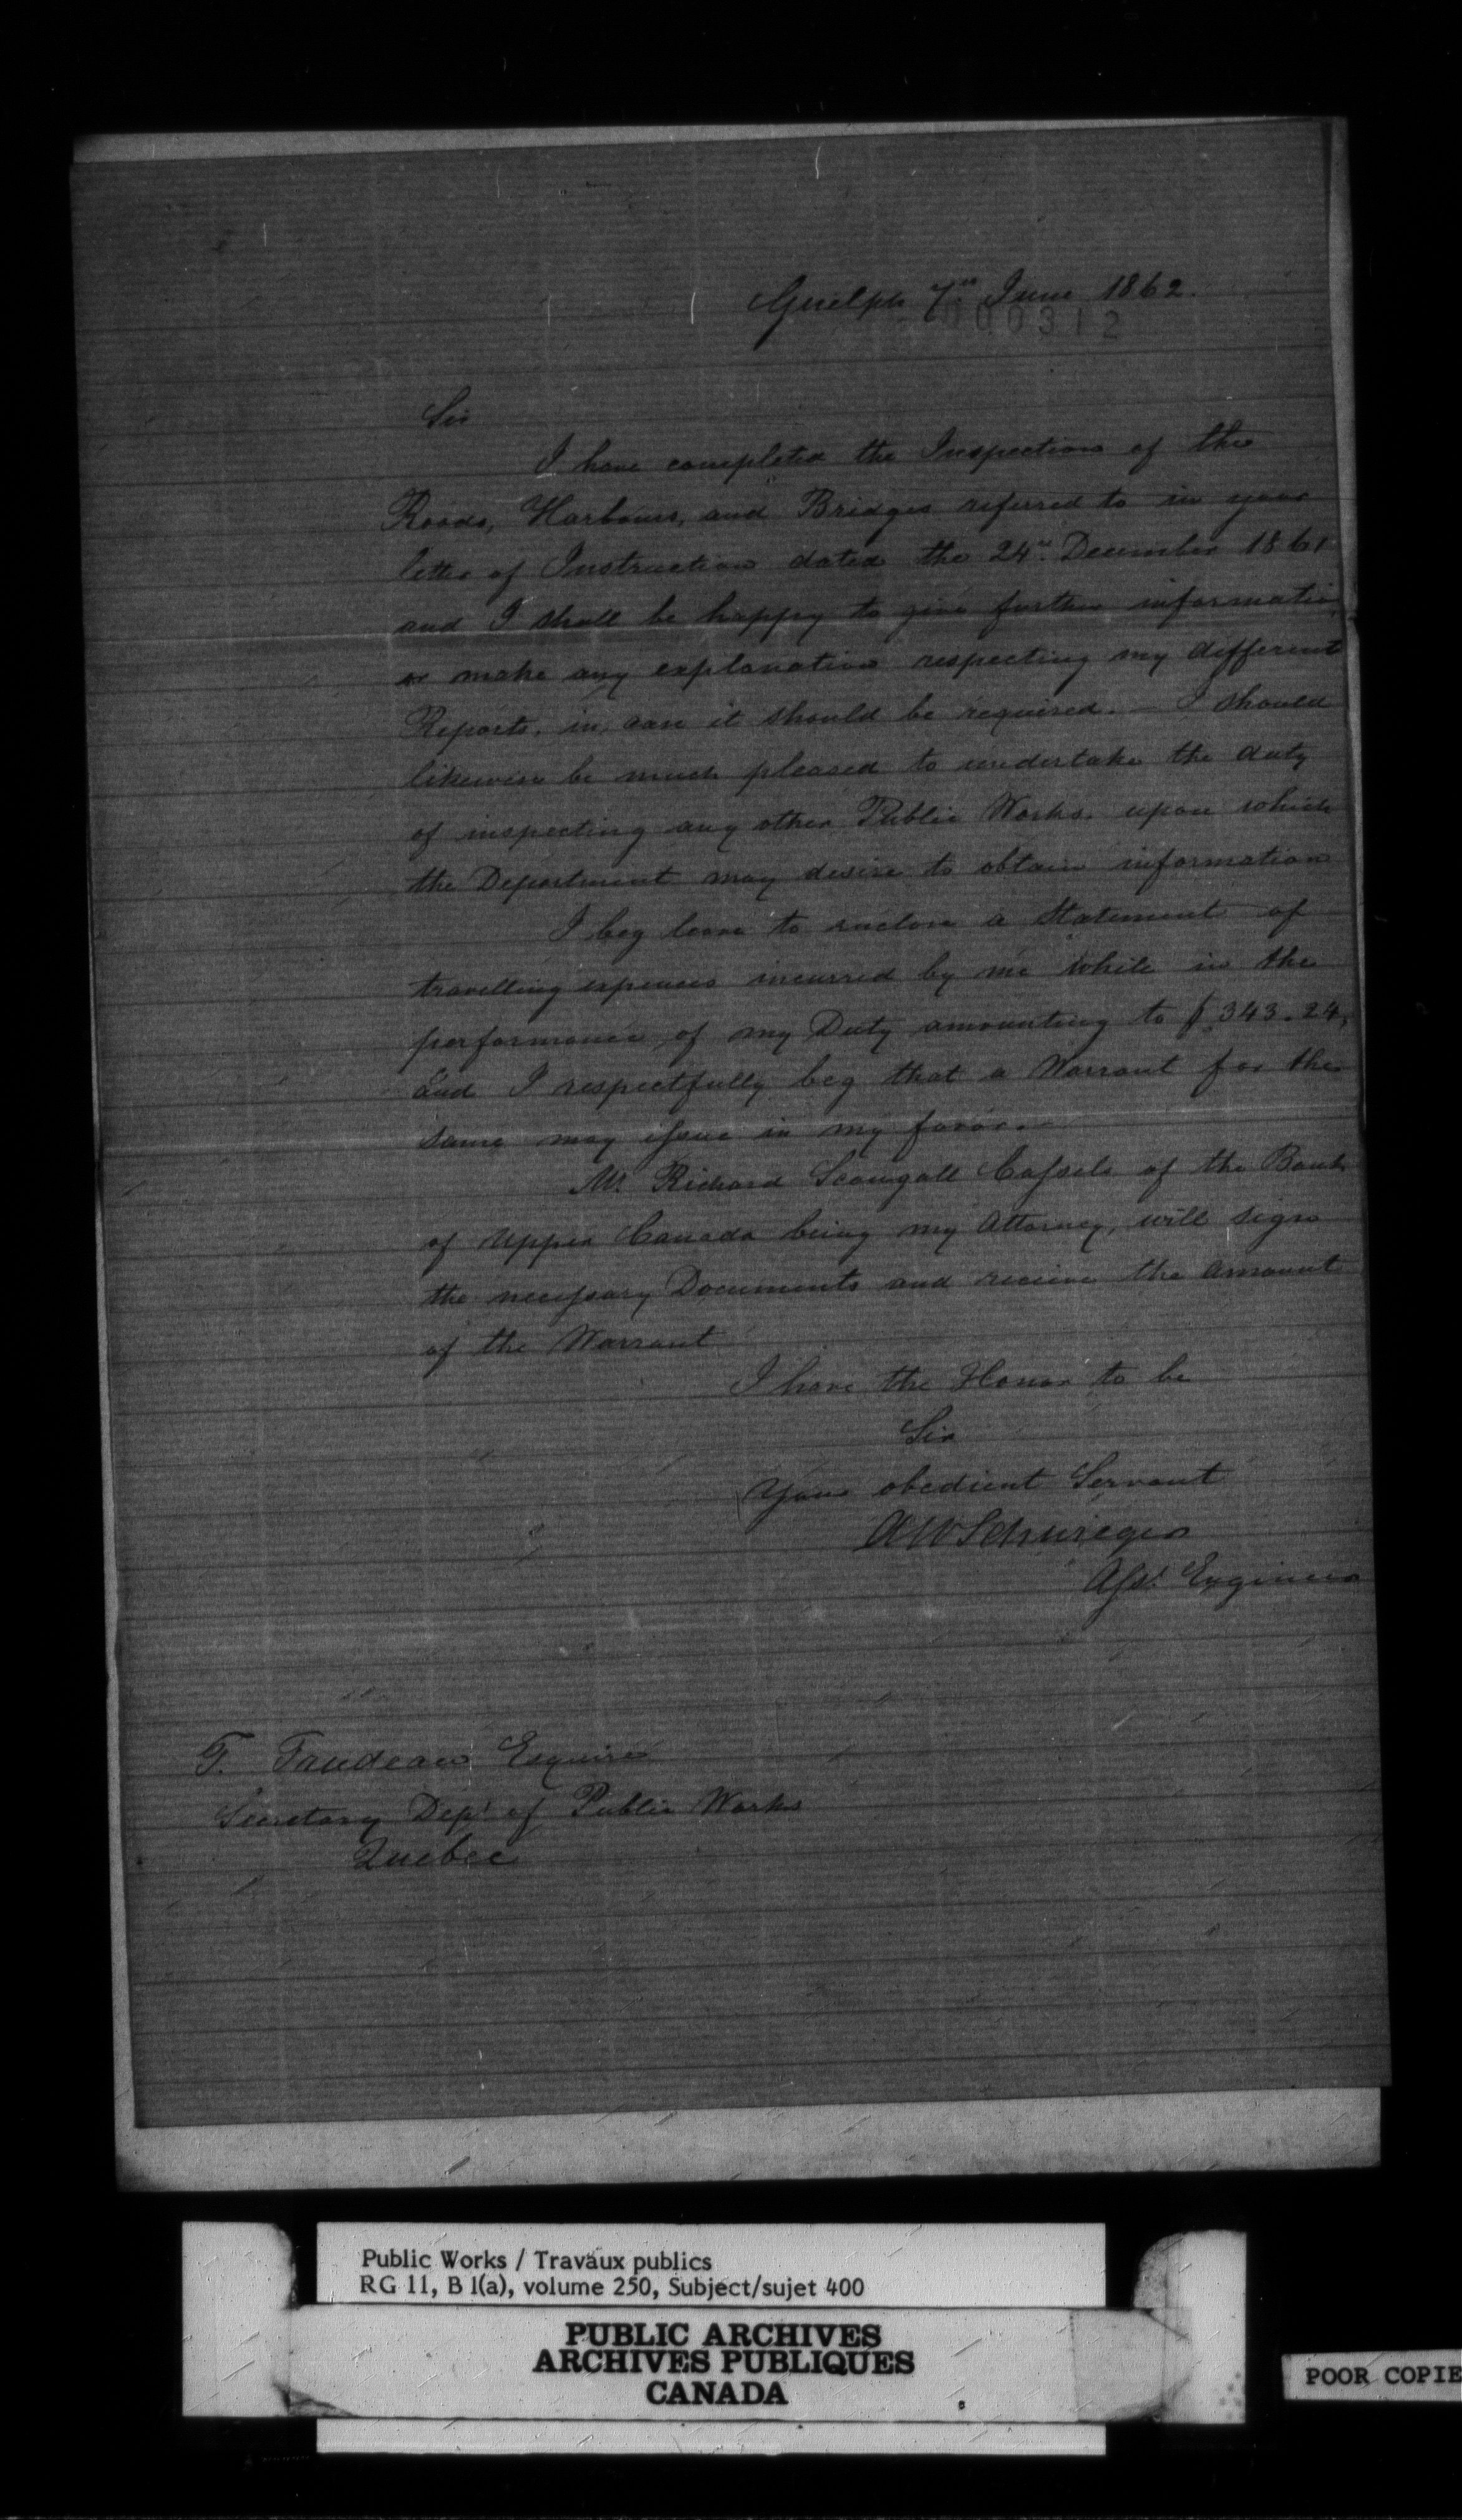 Guelph 7th June 1862.
000312
Sir
I have completed the Inspection of the
Roads, Harbours, and Bridges referred to in your
letter of Instruction dated the 24th December 1861
and I shall be happy to give further information
or make any explanation respecting my different
Reports, in case it should be required. — I should
likewise be much pleased to undertake the duty
of inspecting any other Public Works upon which
the Department may desire to obtain information
I beg leave to enclose a Statement of
travelling expenses incurred by me while in the
performance of my Duty amounting to $343.24,
and I respectfully beg that a Warrant for the
same may issue in my favor.
Mr. Richard Scougall Cassels of the Bank
of Upper Canada being my Attorney, will sign
the necessary Documents and receive the amount
of the Warrant
I have the Honor to be
Sir
Your obedient Servant
AWSchwieger
Asst. Engineer
T. Trudeau Esquire
Secretary Dept of Public Works
Quebec
Public Works / Travaux publics
RG 11, B 1(a), volume 250, Subject/sujet 400
PUBLIC ARCHIVES
ARCHIVES PUBLIQUES
CANADA
POOR COPIE